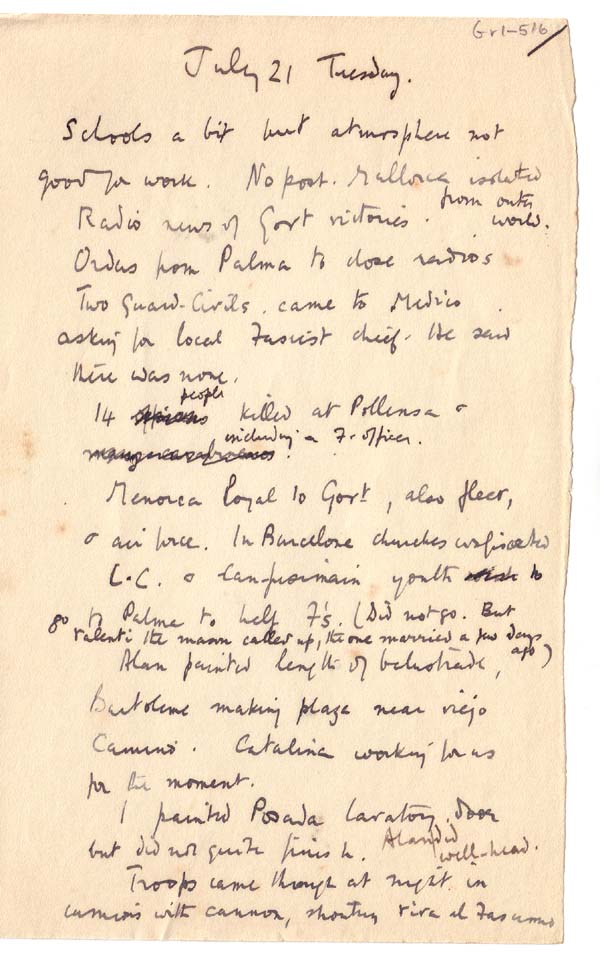 Gr1-516
July 21 Tuesday.
Schools a bit but atmosphere not
good for work. No post. Mallorca isolated
from outer world.
Radio news of Govt victories.
Orders from Palma to close radios
Two Guard-Civils. came to Medico
asking for local Fascist chief. He said
there was none.
people
14 killed at Pollensa &
including a F. officer.
Menorca loyal to Govt, also fleet,
& air force. In Barcelona churches confiscated
L.C. & youth to
go to Palma to help F's. (Did not go. But
Valenti the mason called up, the one married a few days
ago)
Alan painted length of balustrade,
Bartolome making plaza near viejo
Camino. Catalina working for us
for the moment.
I painted Posada lavatory door
but did not quite finish. Alan did
well-head.
Troops came through at night in
camions with cannon, shouting viva el Fascismo